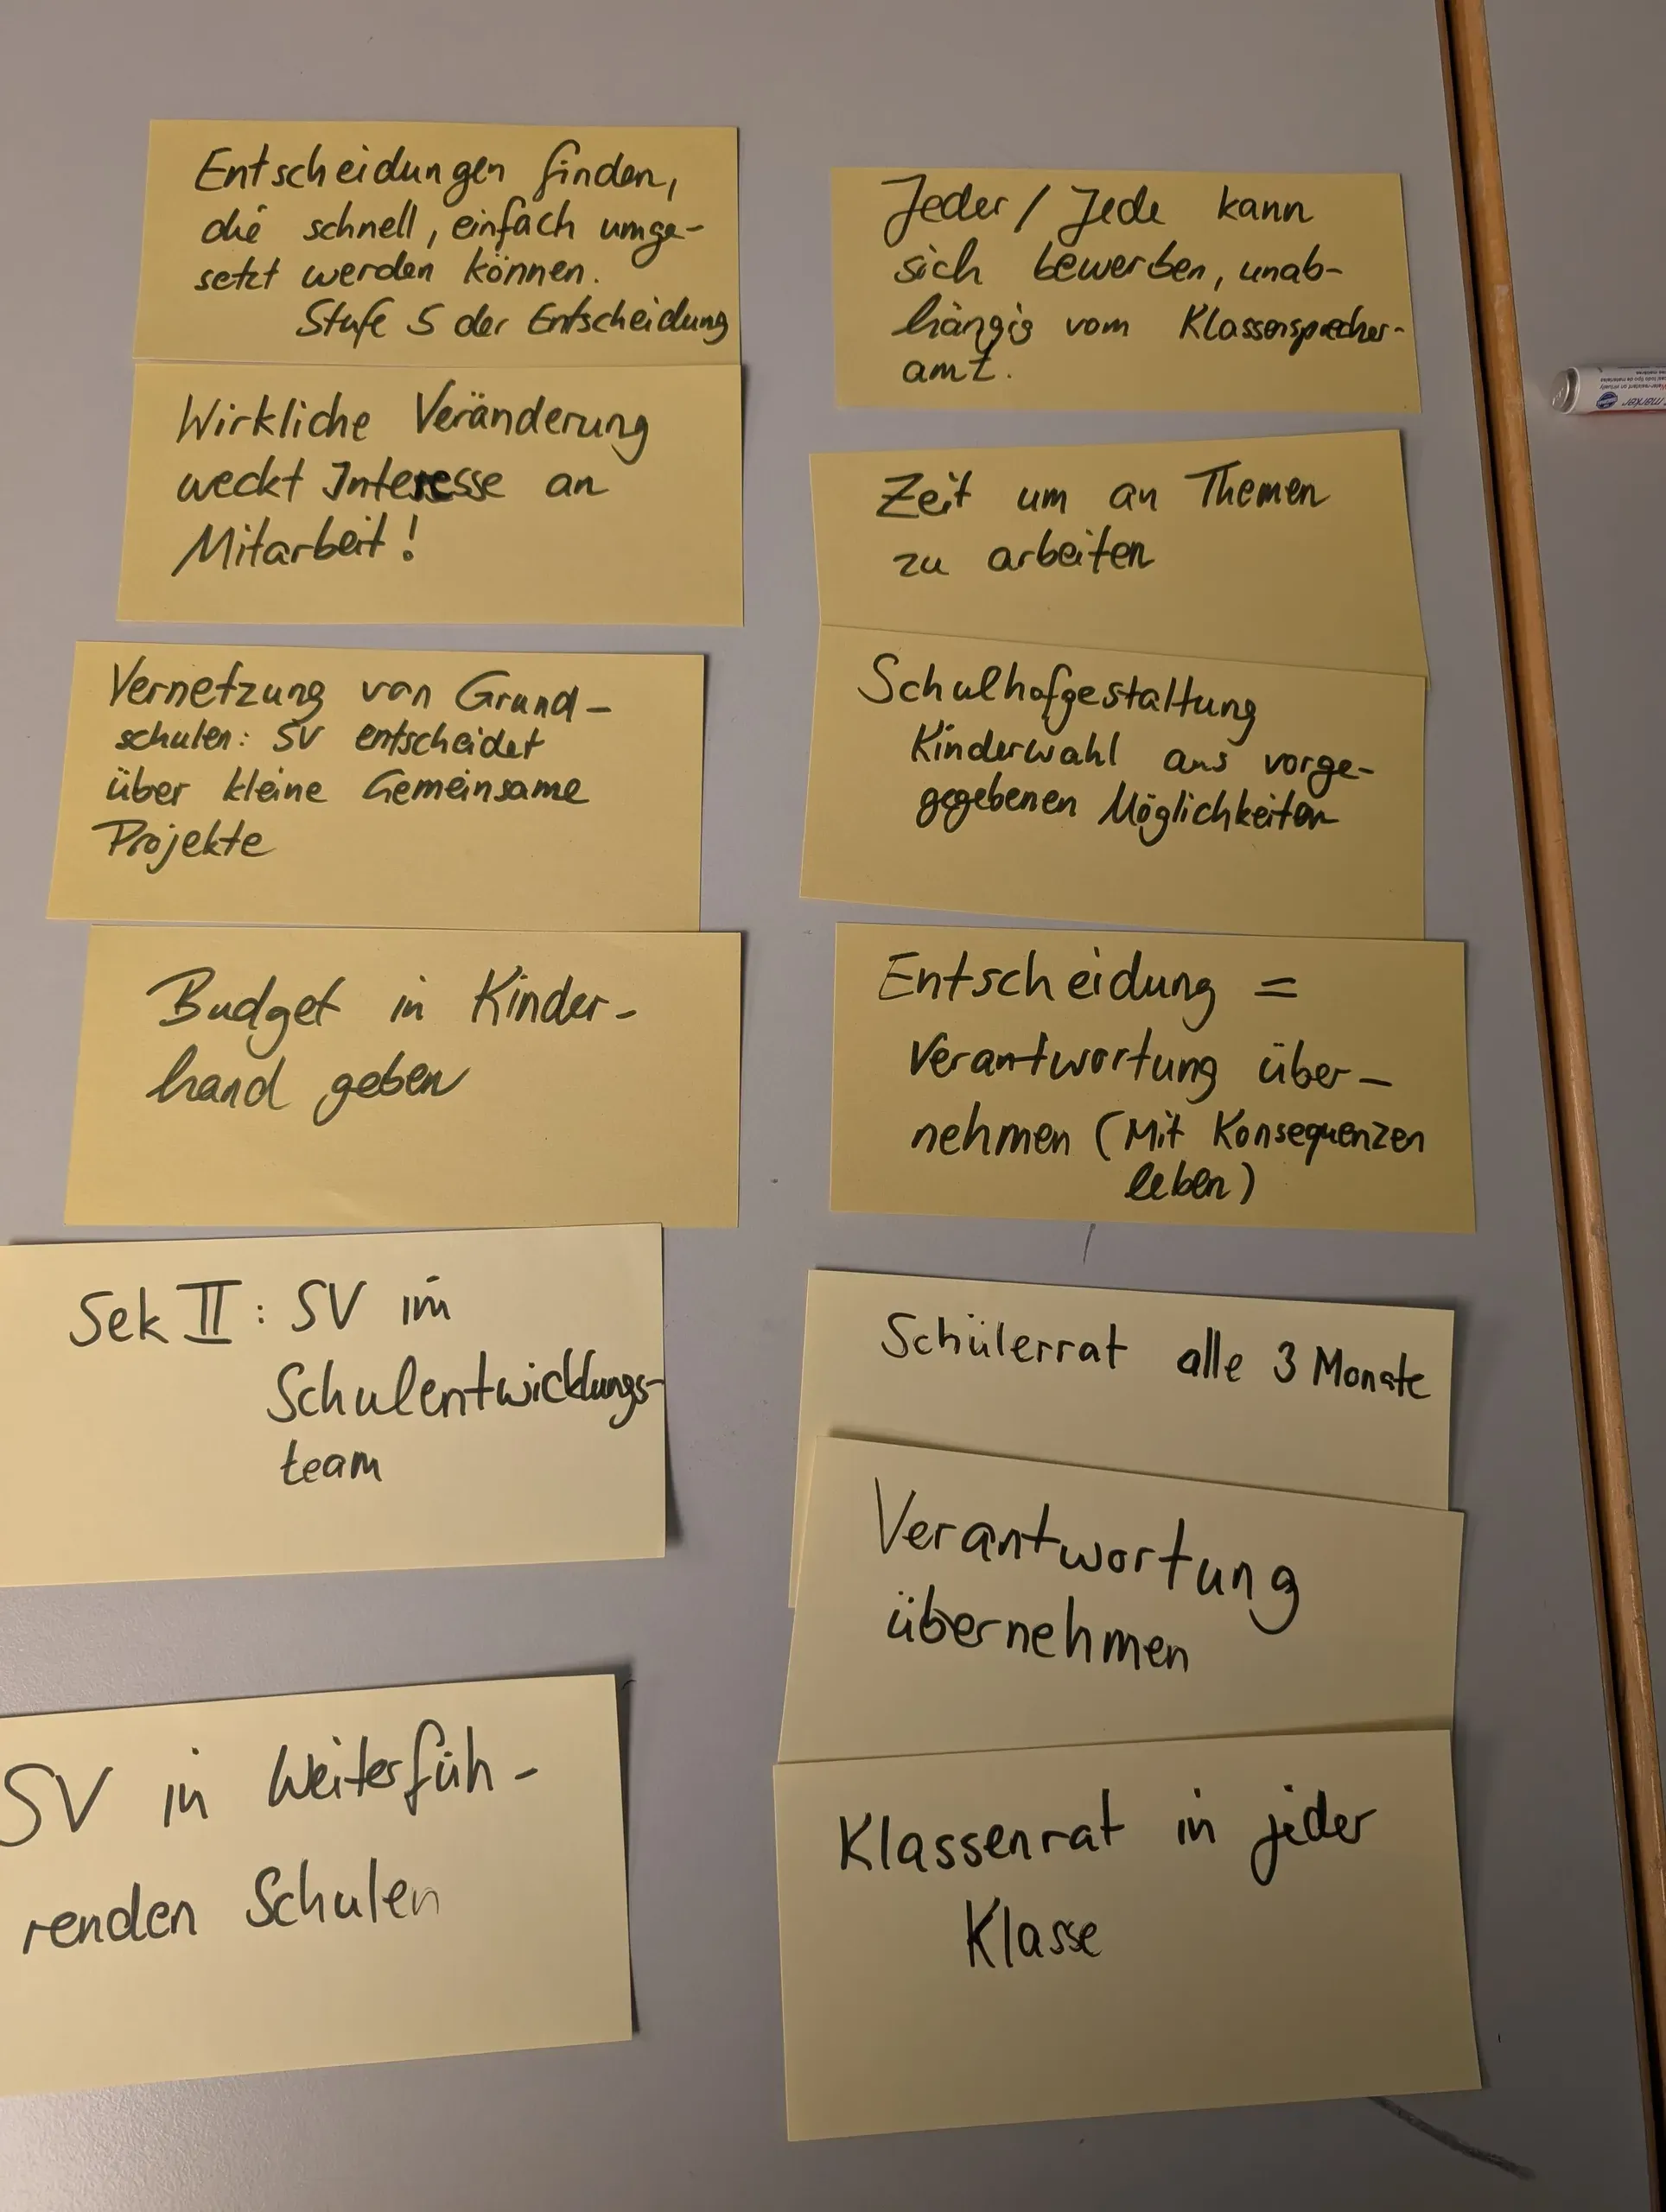 Entscheidungen finden,
die schnell, einfach umge-
setzt werden können.
Stufe 5 der Entscheidung
Wirkliche Veränderung
weckt Interesse an
Mitarbeit!
Vernetzung von Grund-
schulen: SV entscheidet
über kleine Gemeinsame
Projekte
Budget in Kinder-
hand geben
Sek II: SV im
Schulentwicklungs-
team
SV in Weiterfüh-
renden Schulen
Jeder / Jede kann
sich bewerben, unab-
hängig vom Klassensprecher-
amt.
Zeit um an Themen
zu arbeiten
Schulhofgestaltung
Kinderwahl aus vorge-
gegebenen Möglichkeiten
Entscheidung =
Verantwortung über-
nehmen (Mit Konsequenzen
leben)
Schülerrat alle 3 Monate
Verantwortung
übernehmen
Klassenrat in jeder
Klasse
marker